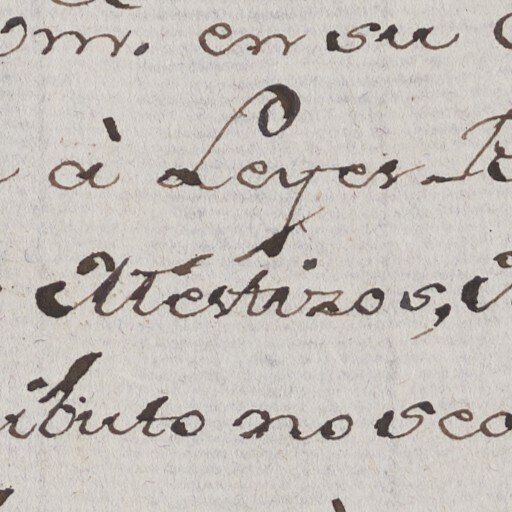 om. en su
à Leyes Re
Mestizos,
ibuto no sea